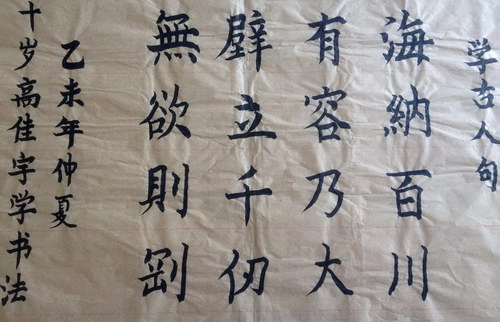 学古人句
海納百川
有容乃大
壁立千仞
無欲則剛
乙未年仲夏
十岁高佳宇学书法